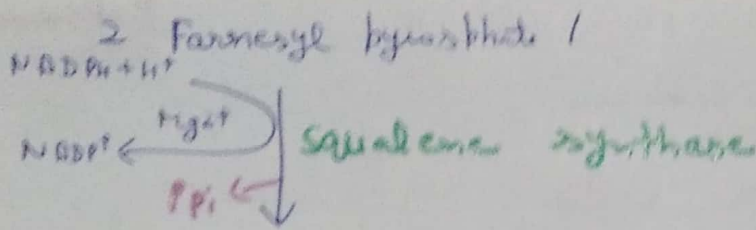 2 Farnesyl pyrophosphate /
NADPH + H⁺
Mg2+
NADP⁺
Squalene synthase
PPi